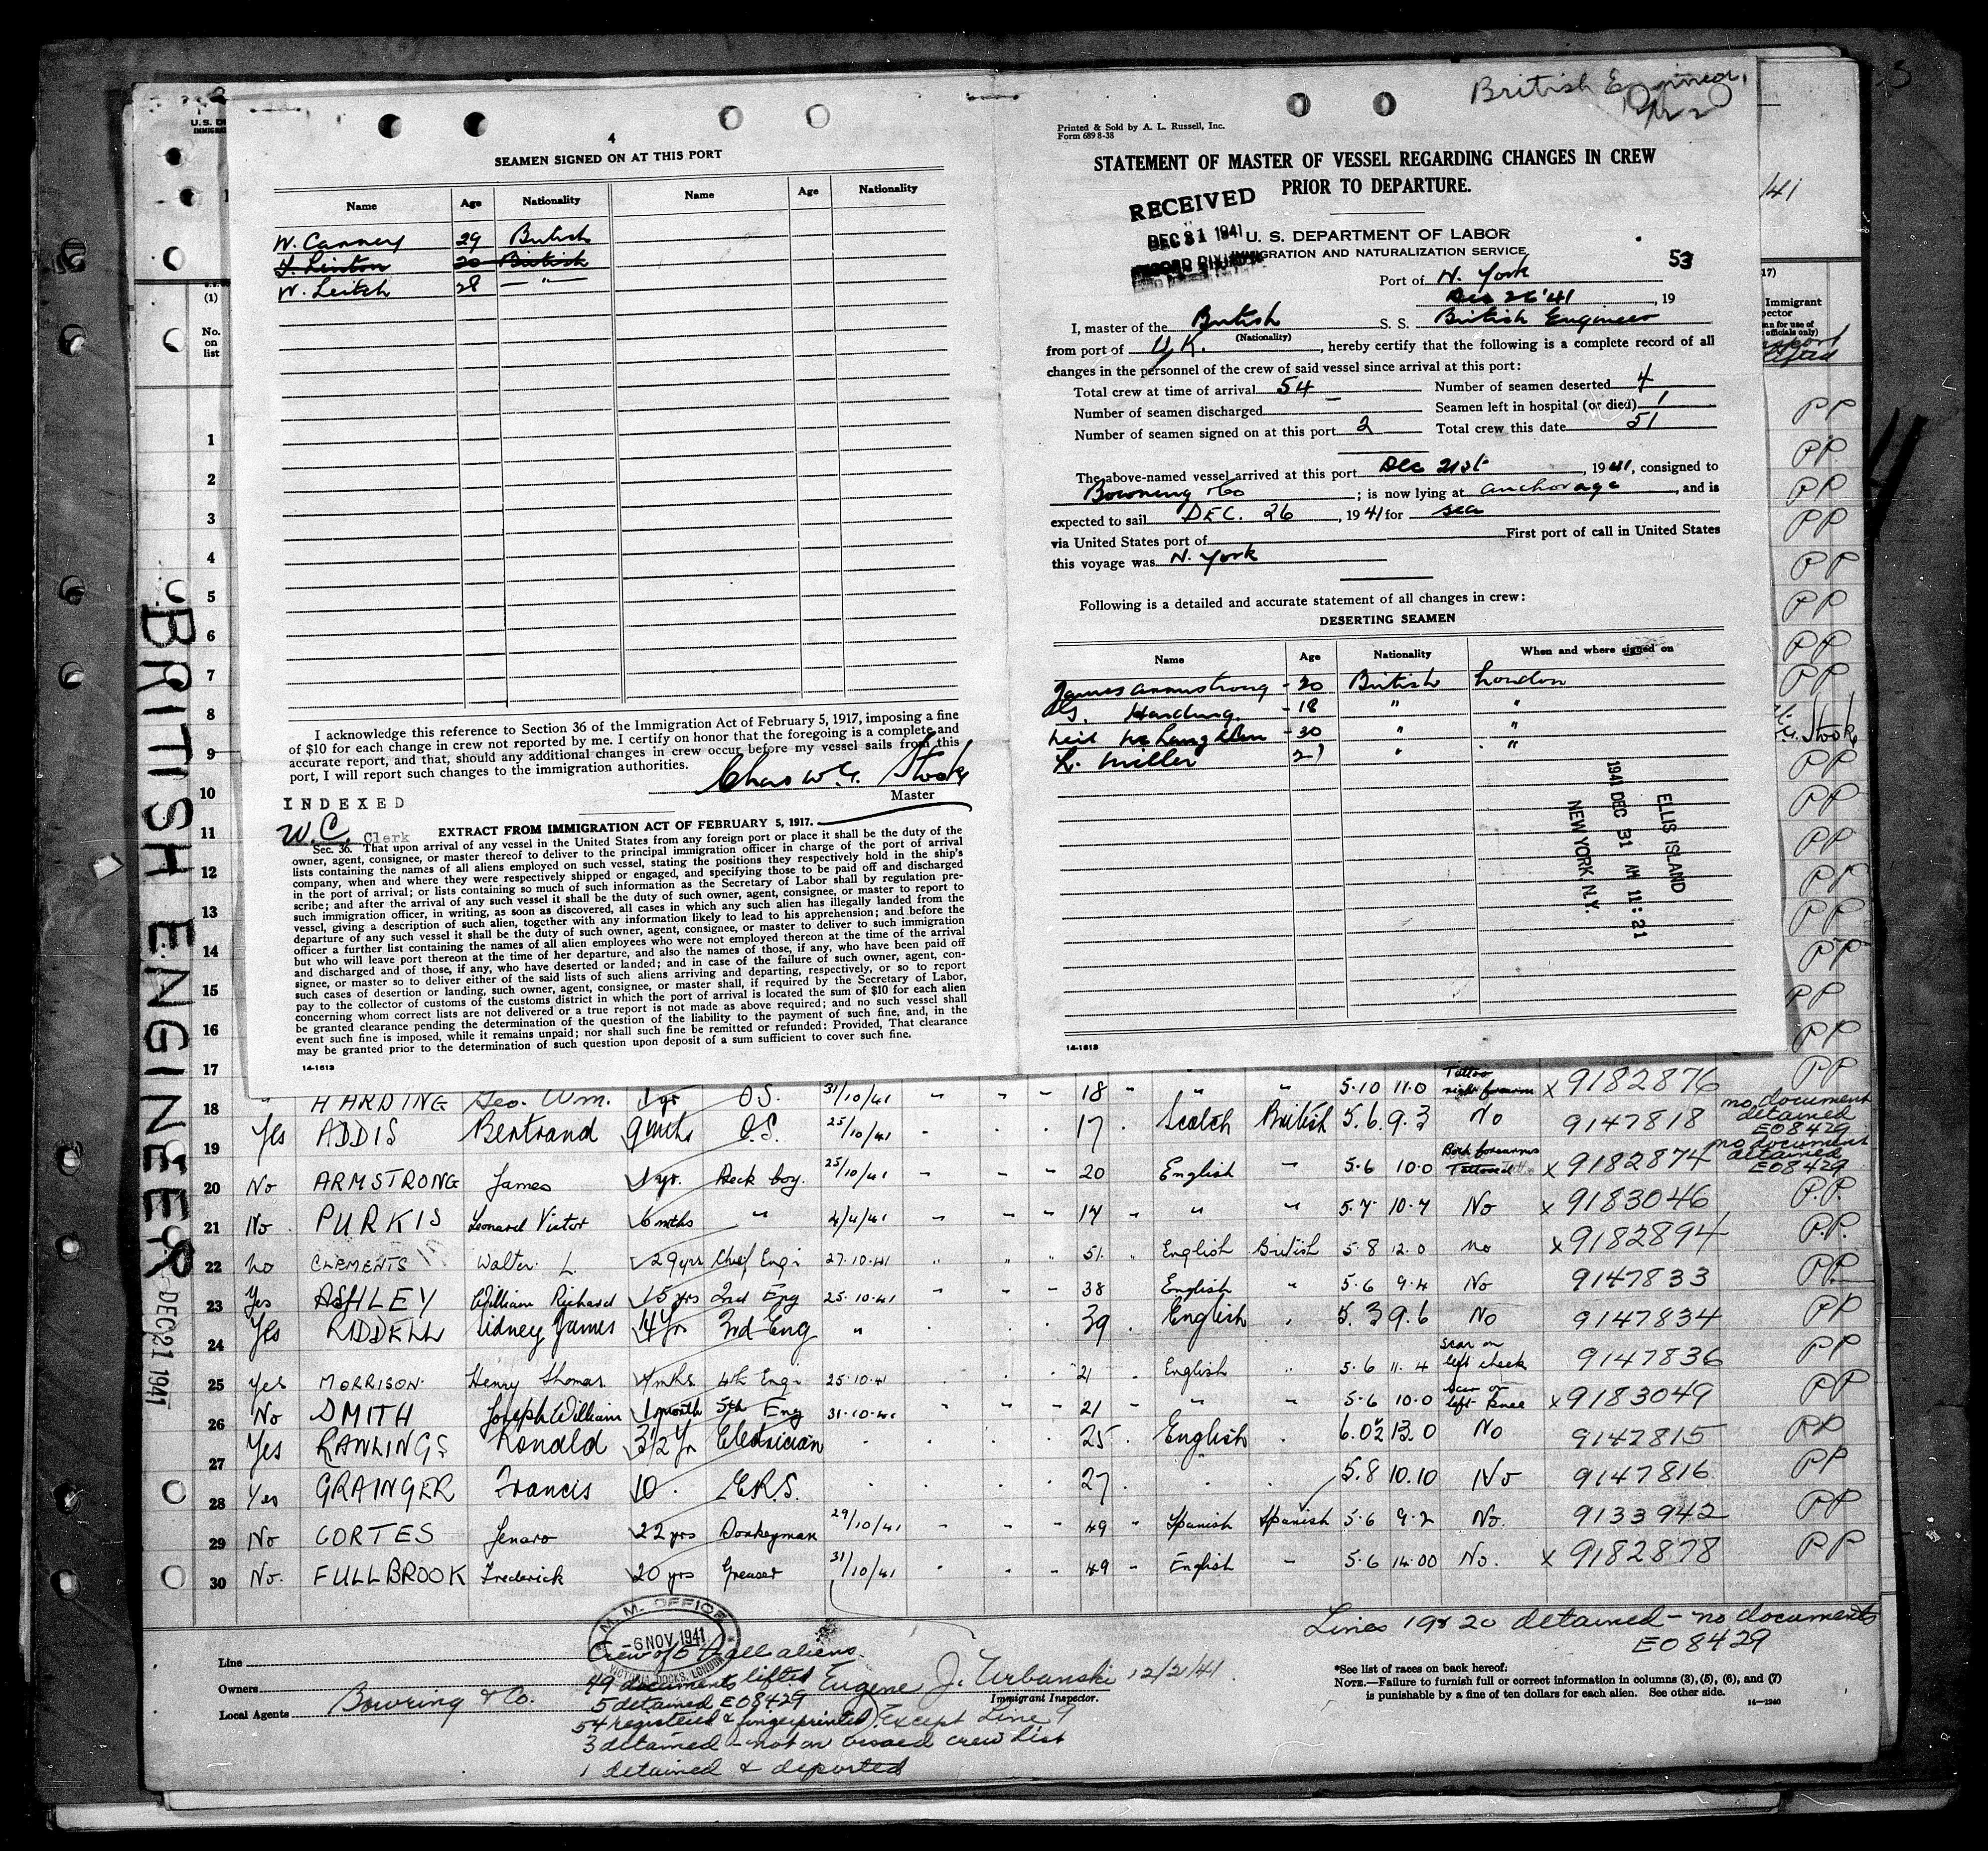 U.S. DE
IMMIGR
4
SEAMEN SIGNED ON AT THIS PORT
Name Age Nationality Name Age Nationality
W. Canney 29 British
J. Linton 20 British
W. Leitch 28 — " —
I acknowledge this reference to Section 36 of the Immigration Act of February 5, 1917, imposing a fine
of $10 for each change in crew not reported by me. I certify on honor that the foregoing is a complete and
accurate report, and that, should any additional changes in crew occur before my vessel sails from this
port, I will report such changes to the immigration authorities.
Chas W. G. Stook
Master
INDEXED
W.C. Clerk
EXTRACT FROM IMMIGRATION ACT OF FEBRUARY 5, 1917.
Sec. 36. That upon arrival of any vessel in the United States from any foreign port or place it shall be the duty of the
owner, agent, consignee, or master thereof to deliver to the principal immigration officer in charge of the port of arrival
lists containing the names of all aliens employed on such vessel, stating the positions they respectively hold in the ship's
company, when and where they were respectively shipped or engaged, and specifying those to be paid off and discharged
in the port of arrival; or lists containing so much of such information as the Secretary of Labor shall by regulation pre-
scribe; and after the arrival of any such vessel it shall be the duty of such owner, agent, consignee, or master to report to
such immigration officer, in writing, as soon as discovered, all cases in which any such alien has illegally landed from the
vessel, giving a description of such alien, together with any information likely to lead to his apprehension; and before the
departure of any such vessel it shall be the duty of such owner, agent, consignee, or master to deliver to such immigration
officer a further list containing the names of all alien employees who were not employed thereon at the time of the arrival
but who will leave port thereon at the time of her departure, and also the names of those, if any, who have been paid off
and discharged and of those, if any, who have deserted or landed; and in case of the failure of such owner, agent, con-
signee, or master so to deliver either of the said lists of such aliens arriving and departing, respectively, or so to report
such cases of desertion or landing, such owner, agent, consignee, or master shall, if required by the Secretary of Labor,
pay to the collector of customs of the customs district in which the port of arrival is located the sum of $10 for each alien
concerning whom correct lists are not delivered or a true report is not made as above required; and no such vessel shall
be granted clearance pending the determination of the question of the liability to the payment of such fine, and, in the
event such fine is imposed, while it remains unpaid; nor shall such fine be remitted or refunded: Provided, That clearance
may be granted prior to the determination of such question upon deposit of a sum sufficient to cover such fine.
14-1613
British Engineer
Printed & Sold by A. L. Russell, Inc.
Form 689 8-38
STATEMENT OF MASTER OF VESSEL REGARDING CHANGES IN CREW
PRIOR TO DEPARTURE.
RECEIVED
DEC 31 1941
U. S. DEPARTMENT OF LABOR
IMMIGRATION AND NATURALIZATION SERVICE
53
Port of N. York
Dec 26 '41, 19
I, master of the British S. S. British Engineer
(Nationality)
from port of U.K., hereby certify that the following is a complete record of all
changes in the personnel of the crew of said vessel since arrival at this port:
Total crew at time of arrival 54 Number of seamen deserted 4
Number of seamen discharged — Seamen left in hospital (or died) 1
Number of seamen signed on at this port 2 Total crew this date 51
The above-named vessel arrived at this port Dec 21st, 1941, consigned to
Bowring & Co; is now lying at anchorage, and is
expected to sail DEC. 26, 1941 for sea
via United States port of First port of call in United States
this voyage was N. York
Following is a detailed and accurate statement of all changes in crew:
DESERTING SEAMEN
Name Age Nationality When and where signed on
James Armstrong - 20 British London
G. Harding. - 18 " "
Neil McLaughlan - 30 " "
L. Miller 21 " "
ELLIS ISLAND
1941 DEC 31 AM 11:21
NEW YORK N.Y.
14-1613
/41
17)
Immigrant
pector
mn for use of
officials only)
(1)
No.
on
list
1 PP
2 PP
3 PP
4 PP
5 PP
6 PP
7 PP
8 PP
9 Stook
10 PP
11 PP
12 PP
13 PP
14 PP
15 PP
16 PP
17 PP
BRITISH ENGINEER
DEC 21 1941
18 " HARDING Geo. Wm. 1 yr O.S. 31/10/41 " " " 18 " " " 5.10 11.0 Tattoo right forearm x 9182876 PP
19 Yes ADDIS Bertrand 9 mths O.S. 25/10/41 17 Scotch British 5.6. 9.3 No 9147818 no document detained E08429
20 No ARMSTRONG James 1 yr. Deck boy. 25/10/41 " " " 20 English " 5.6 10.0 Both forearms Tattooed x 9182874 no document detained E08429
21 No PURKIS Leonard Victor 6 mths " 4/4/41 " " " 17 " " " 5.7 10.7 No x 9183046 P.P.
22 No CLEMENTS Walter L. 29 yrs Chief Engr 27.10.41 " " " 51 " English British 5 8 12.0 no x 9182894 P.P.
23 Yes ASHLEY William Richard 15 yrs 2nd Eng 25.10.41 38 English " 5.6 9.4 No 9147833 PP
24 Yes RIDDELL Sidney James 14 yr 3rd Eng " 39 English 5.3 9.6 No 9147834 PP
25 Yes MORRISON Henry Thomas 4 mths 4th Engr 25.10.41 21 English " 5.6 11.4 scar on left cheek 9147836 PP
26 No DMITH Joseph William 1 month 5th Eng 31.10.41 " " " 21 " " " 5.6 10.0 scar on left knee x 9183049 PP
27 Yes RAWLINGS Ronald 3½ Yr Electrician 25 English 6.0½ 13.0 No 9147815 PP
28 Yes GRAINGER Francis 10 E.R.S. 27 5.8 10.10 No 9147816 PP
29 No CORTES Jenaro 22 yrs Donkeyman 29/10/41 " " " 49 " Spanish Spanish 5.6 9.2 No. 9133942 PP
30 No. FULLBROOK Frederick 20 yrs Greaser 31/10/41 " " " 49 " English " 5.6 14.00 No. x 9182878 PP
M. M. OFFICE
-6 NOV 1941
VICTORIA DOCKS, LONDON
Lines 19 & 20 detained - no documents
E08429
Line
Owners
Local Agents Bowring & Co.
Crew of 54 all aliens.
49 documents lifted
5 detained E08429
54 registered & fingerprinted) Except Line 9
3 detained - not on visaed crew list
1 detained & deported
Eugene J. Urbanski 12/21/41
Immigrant Inspector.
*See list of races on back hereof.
NOTE.—Failure to furnish full or correct information in columns (3), (5), (6), and (7)
is punishable by a fine of ten dollars for each alien. See other side. 14—1240